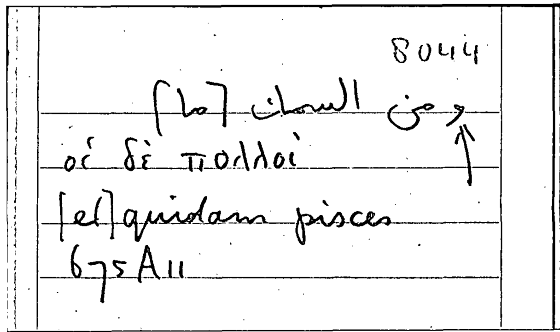 8044
ومن السمك [ما]
οἱ δὲ πολλοί
[et] quidam pisces
675A11